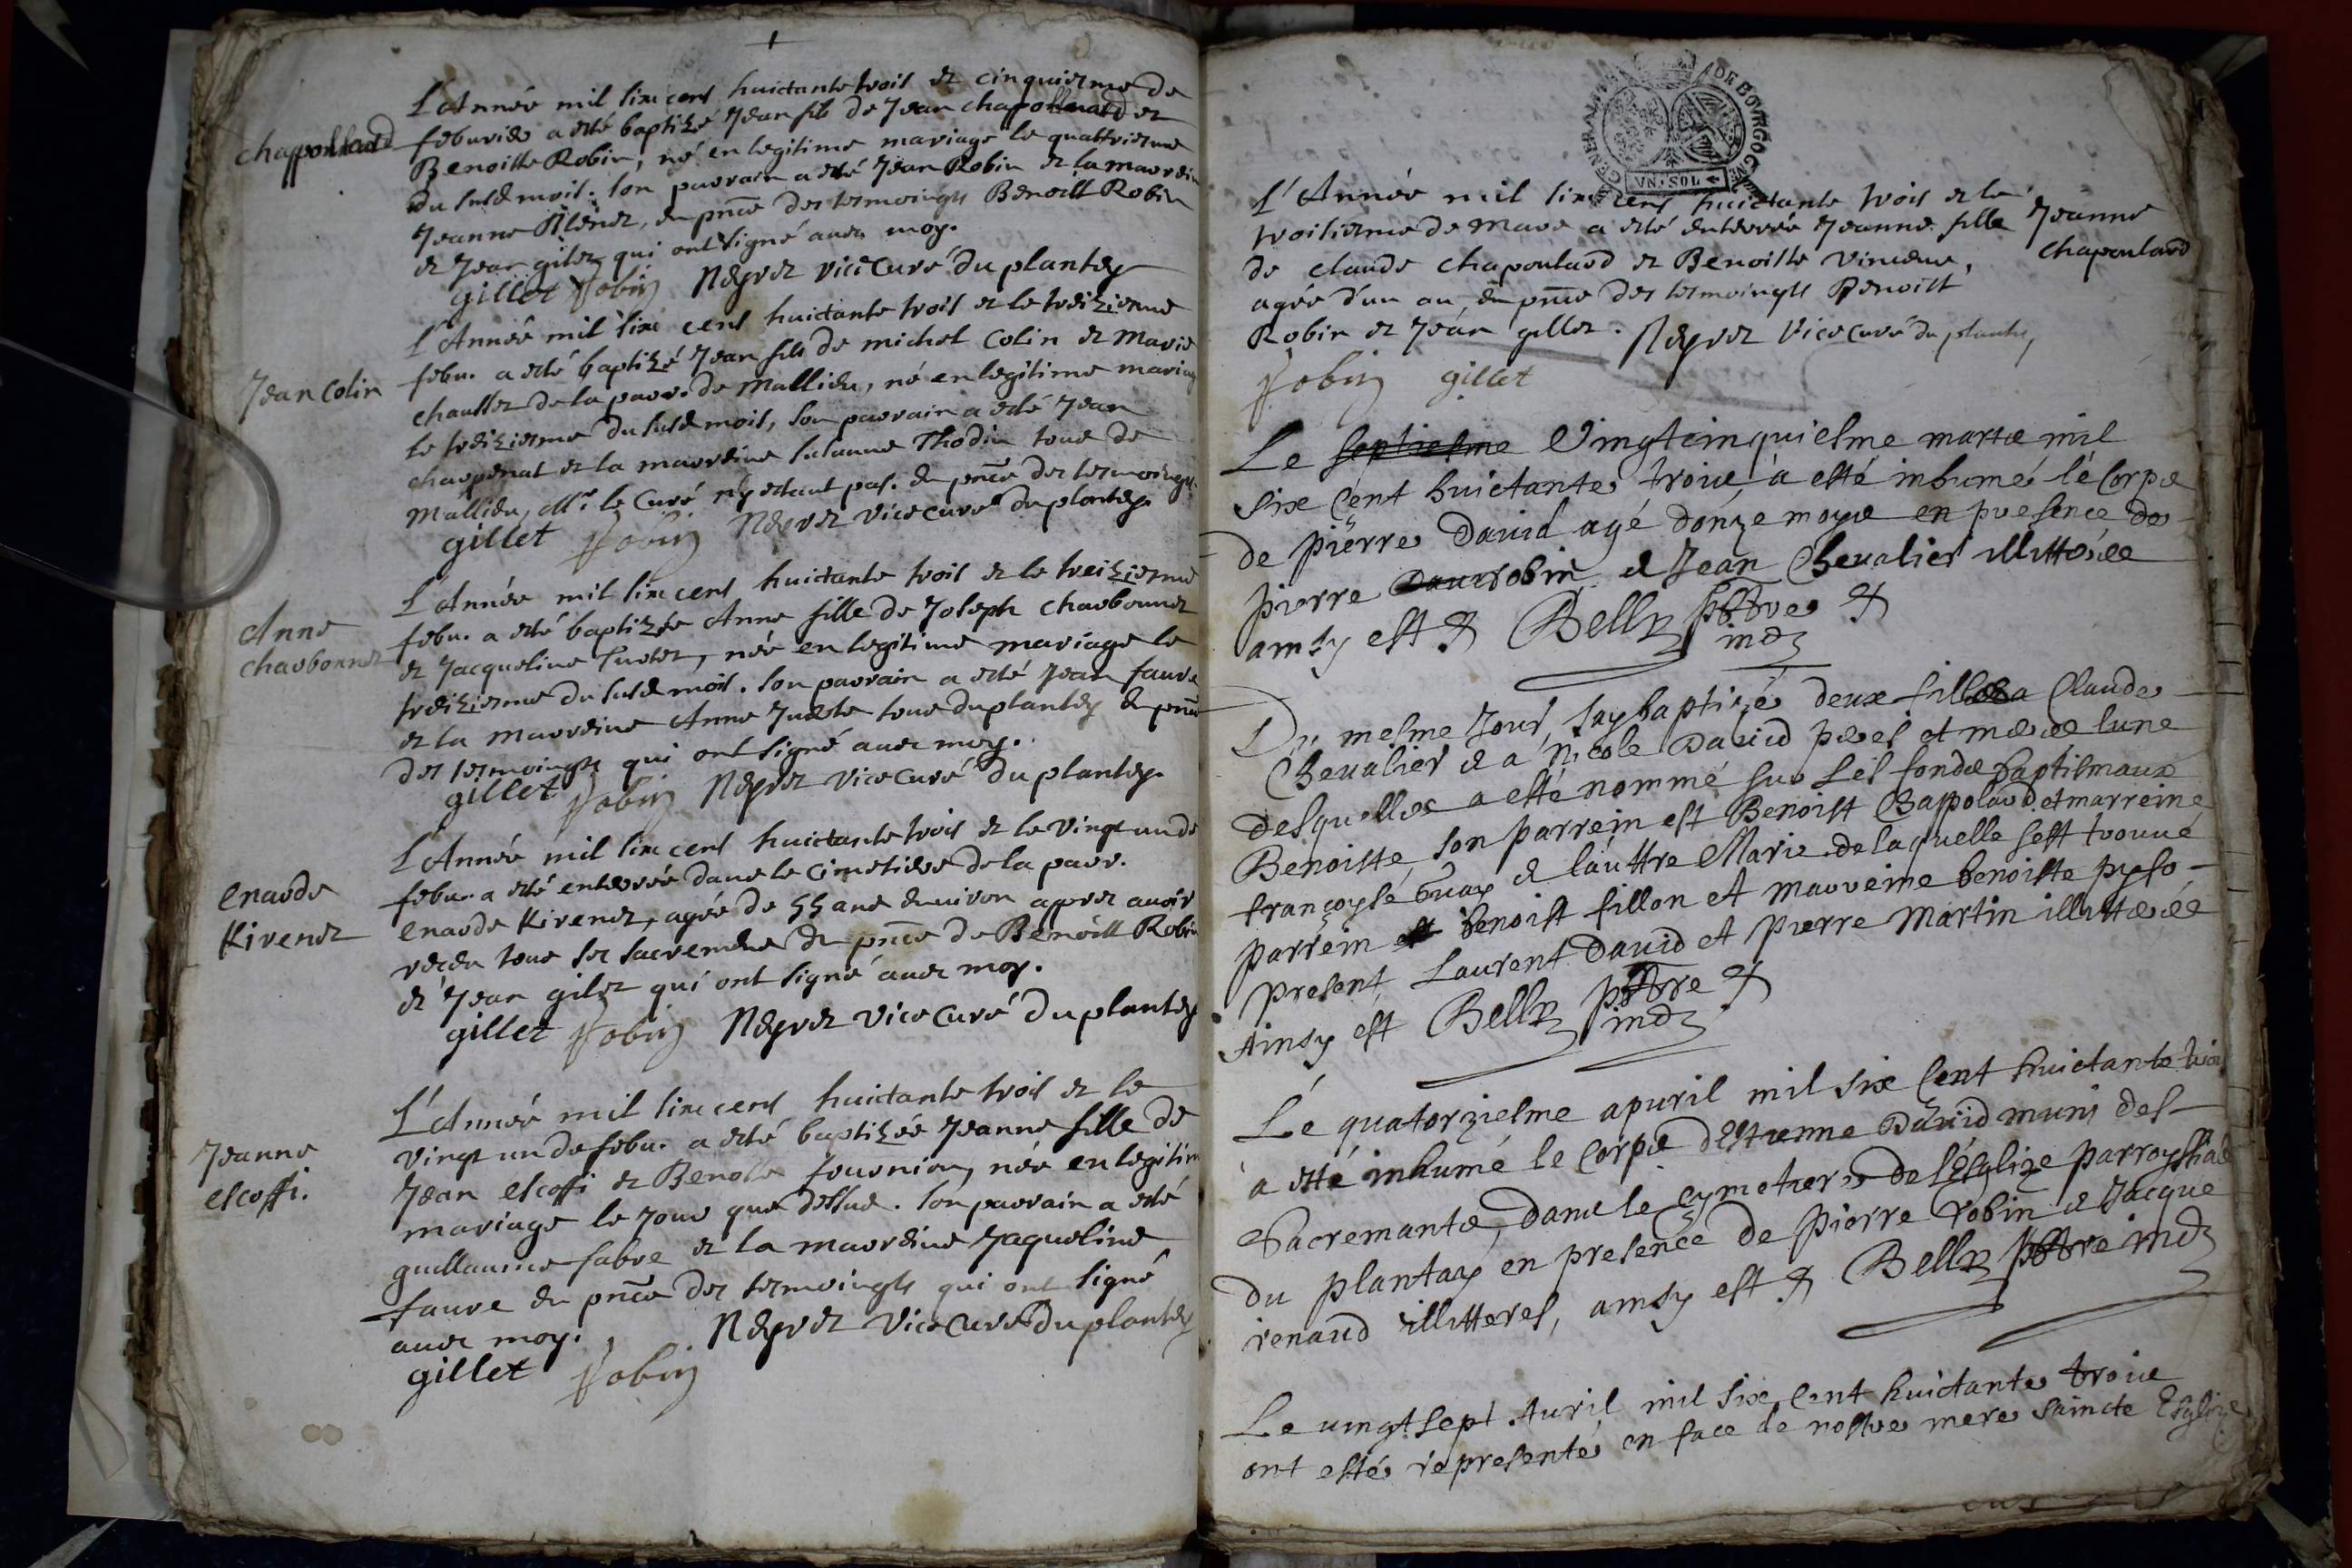 L'Année mil six cens huictante trois et cinquiesme de
Chappollard
febvrier a esté baptizé Jean fils de Jean Chapollard et
Benoiste Robin, né en legitime mariage le quattriesme
du susd mois. son parrain a esté Jean Robin et la marrein
Jeanne, en pnce des tesmoings Benoist Robin
et Jean gilet qui ont signé avec moy.
gillet Robin Neyret vice Curé du plantey
L'Année mil six cens huictante trois et le treizieme
febu. a esté baptizé Jean fils de michel Colin et Marie
Jean Colin
chausset de la parr. de Mallieu, né en legitime mariag
le treiziesme du susd mois, son parrain a esté Jean
charpenat et la marreine susanne Thodin tous de
Mallieu, Mr. le Curé n'y estant pas. en pnce des tesmoings.
gillet Robin Neyret vice curé du plantey
L'Année mil six cens huictante trois et le treiziesme
Anne
charbonnet
febu. a esté baptizée Anne fille de Joseph charbonnet
et Jacqueline, née en legitime mariage le
treiziesme du susd mois. son parrain a esté Jean faure
et la marreine Anne tous du plantey en pnce
des tesmoings qui ont signé avec moy.
gillet Robin Neyret vice Curé du plantey.
L'Année mil six cens huictante trois et le vingt un de
Enarde
Kivenet
febu. a esté enterrée dans le cimetiere de la parr.
Enarde Kivenet, agée de 55 ans environ apres avoir
receu tous ses sacremens en pnce de Benoist Robin
et Jean gilet qui ont signé avec moy.
gillet Robin Neyret vice Curé du plantey
L'Année mil six cens huictante trois et le
Jeanne
escoffi.
vingt un de febu. a esté baptizée Jeanne fille de
Jean escoffi et Benoiste fournion, née en legitim
mariage le jour que dessus. son parrain a esté
guillaume fabre et la marreine Jaqueline
faure en pnce des tesmoings qui ont signé
avec moy. Neyret vice Curé Du plantey
gillet Robin
GENERALITE DE BOURGOGNE
VN. SOL
L'Année mil six cens huictante trois et le
troisiesme de Mars a esté enterrée Jeanne fille
Jeanne
Chapoulard
de claude Chapoulard et Benoiste Vincens,
agée d'un an en pnce des tesmoings Benoist
Robin et Jean gillet. Neyret Vice curé du plantey
Robin gillet
Le septiesme Vingtcinquiesme mars mil
six cent huictante trois, a esté inhumé le Corps
de pierre David agé donze moys en presence de
pierre robin & Jean Chevalier illitterés
ainsy est Bellz pbtre
ind
Du mesme Jour, Jay baptizé deux filles a Claude
Chevalier & a Nicole David peres et meres lune
desquelles a esté nommé sur les fonds baptismaux
Benoiste, son parrein est Benoist Chappolard, et marreine
françoyse & l'auttre Marie de laquelle sest trouvé
parrein benoist fillon et marreine benoiste
present Laurent David et pierre Martin illitterés
Ainsy est Bellz pbtre
ind
Le quatorziesme apuril mil six cent huictante troi
a esté inhumé le corps dEstienne David muni des
Sacremants, dans le cymetiere de lEsglize parroyssiale
du plantay en presence de pierre robin & Jacque
renaud illitteres, ainsy est Bellz pbtre ind
Le vingt sept Auril mil six cent huictante trois
ont estés representés en face de nostre mere saincte Esglize